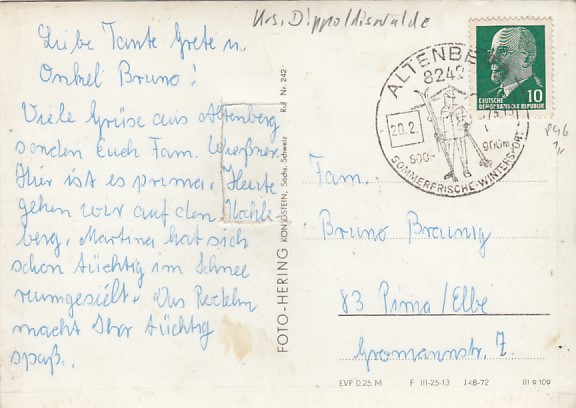 Krs. Dippoldiswalde
Liebe Tante Grete u.
Onkel Bruno!
Viele Grüße aus Altenberg
senden Euch Fam.
Hier ist es prima. Heute
gehen wir auf den Kahle-
berg. Martina hat sich
schon tüchtig im Schnee
rumgesielt. Das Rodeln
macht Ihr tüchtig
spaß.
FOTO-HERING KÖNIGSTEIN, Sächs. Schweiz Ruf Nr. 242
ALTENBERG
8242
20.2.
900m
SOMMERFRISCHE-WINTERSPORT
DEUTSCHE
DEMOKRATISCHE REPUBLIK
10
846
Fam.
Bruno Braunig
83 Pirna/Elbe
Gromannstr. 7.
EVP 0,25 M F III-25-13 J 48-72 III 9 109